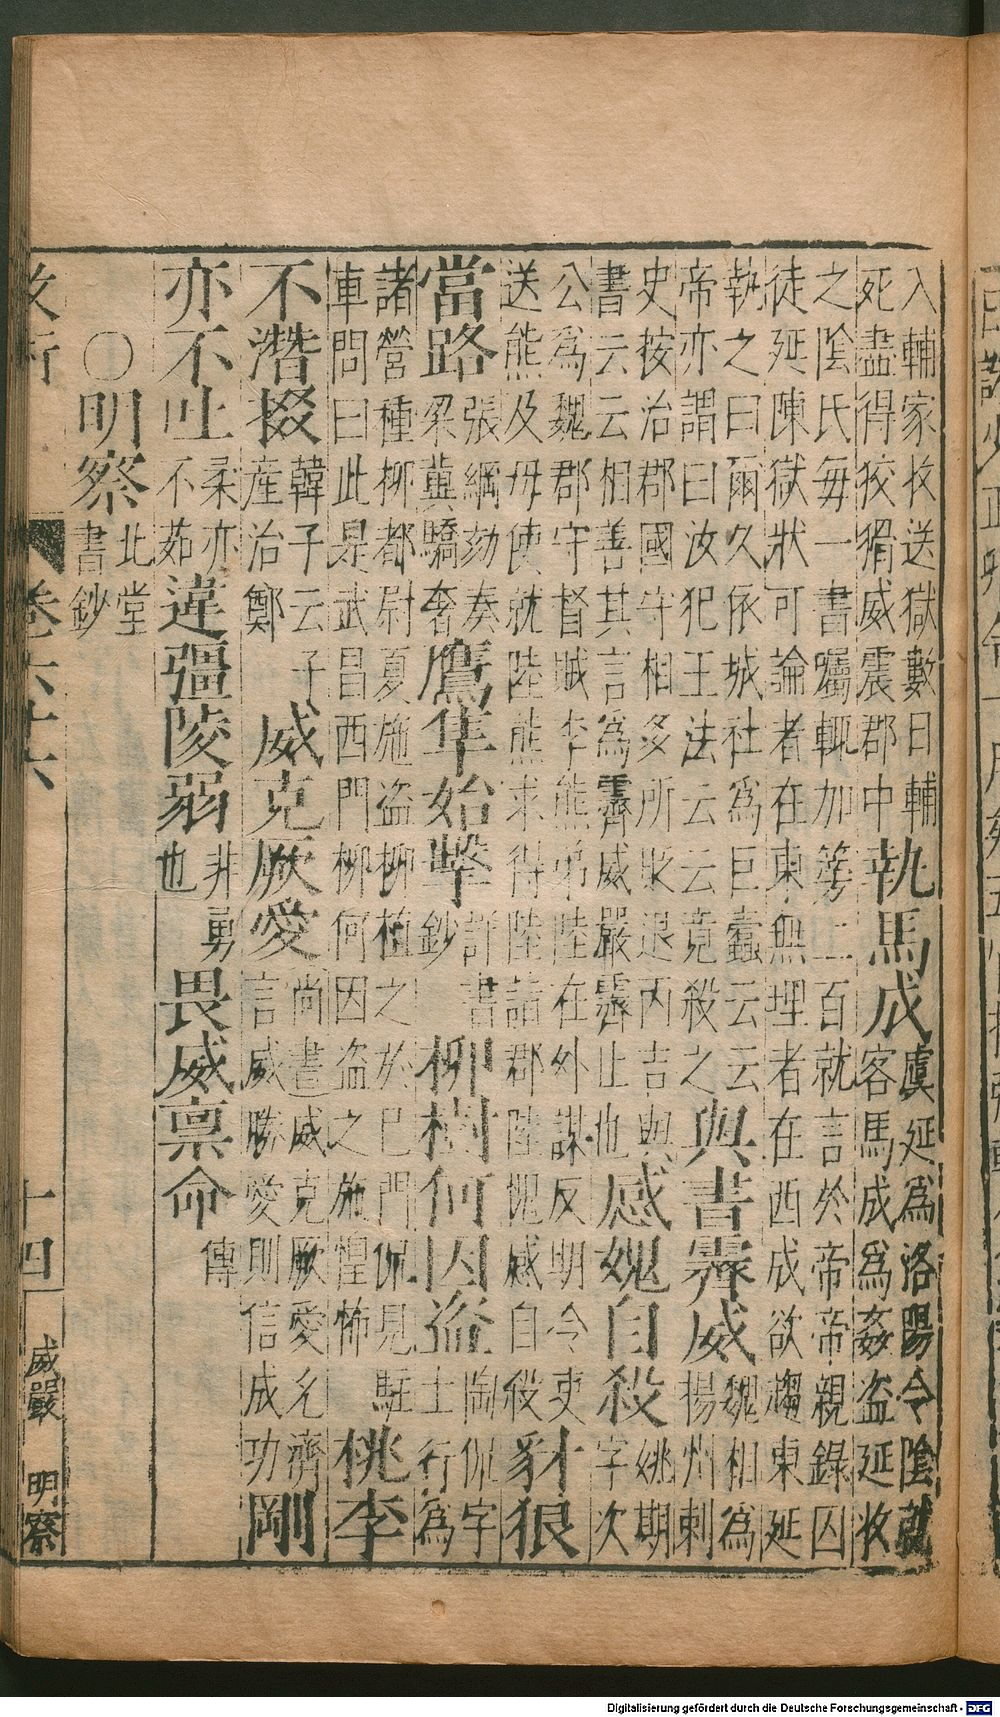 入輔家收送獄數日輔
死盡得狡猾威震郡中
執馬成
虞延爲洛陽令陰就
客馬成爲姦盜延收
之陰氏每一書囑輒加篣二百就言於帝帝親錄囚
徒延陳獄狀可論者在東無理者在西成欲趨東延
執之曰爾久依城社爲巨蠹云云
帝亦謂曰汝犯王法云云竟殺之
與書霽威
魏相爲
揚州刺
史按治郡國守相多所貶退丙吉與
書云云相善其言爲霽威嚴霽止也
感媿自殺
姚期
字次
公爲魏郡守督賊李熊弟陸在外謀反明令吏
送熊及母使就陸熊求得陸詣郡陸媿感自殺
豺狼
當路
張綱劾奏
梁冀驕奢
鷹隼始擊
詩書
鈔
柳樹何因盜
陶侃字
士行爲
諸營種柳都尉夏施盜柳植之於已門侃見駐
車問曰此是武昌西門柳何因盜之施惶怖
桃李
不濳掇
韓子云子
產治鄭
威克厥愛
尚書威克厥愛允濟
言威勝愛則信成功
剛
亦不吐
柔亦
不茹
違彊陵弱
非勇
也
畏威禀命
傳
〇明察
北堂
書鈔
政術 卷六十六 十四 威嚴 明察
Digitalisierung gefördert durch die Deutsche Forschungsgemeinschaft - DFG